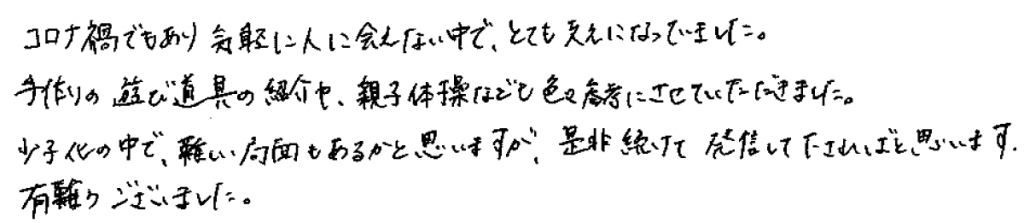 コロナ禍でもあり気軽に人に会えない中で、とても支えになっていました。
手作りの遊び道具の紹介や、親子体操なども色々参考にさせていただきました。
少子化の中で、難しい局面もあるかと思いますが、是非続けて発信して下さればと思います.
有難うございました。